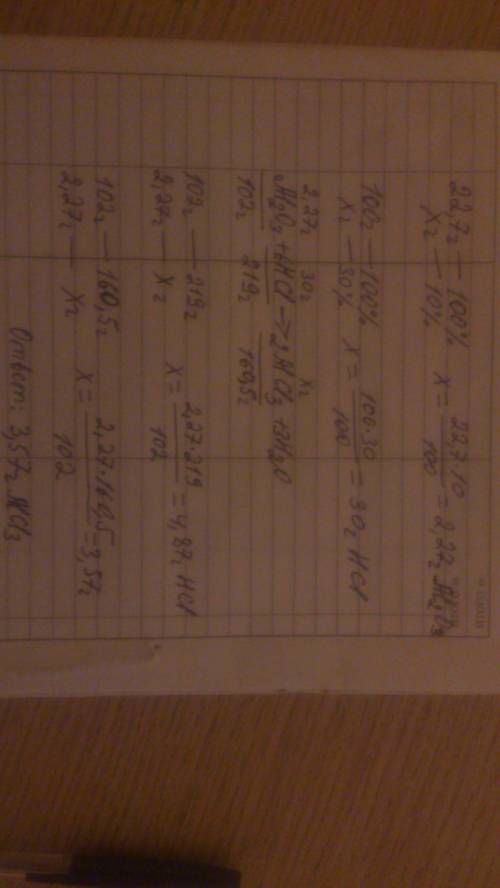 22,7г — 100%   x = 22,7·10 / 100 = 2,27г Al₂O₃
xг — 10%
100г — 100%   x = 100·30 / 100 = 30г HCl
xг — 30%
2,27г   30г   xг
Al₂O₃ + 6HCl → 2AlCl₃ + 3H₂O
102г   219г   160,5г
102г — 219г   x = 2,27·219 / 102 = 4,87г HCl
2,27г — xг
102г — 160,5г   x = 2,27·160,5 / 102 = 3,57г
2,27г — xг
Ответ: 3,57г AlCl₃